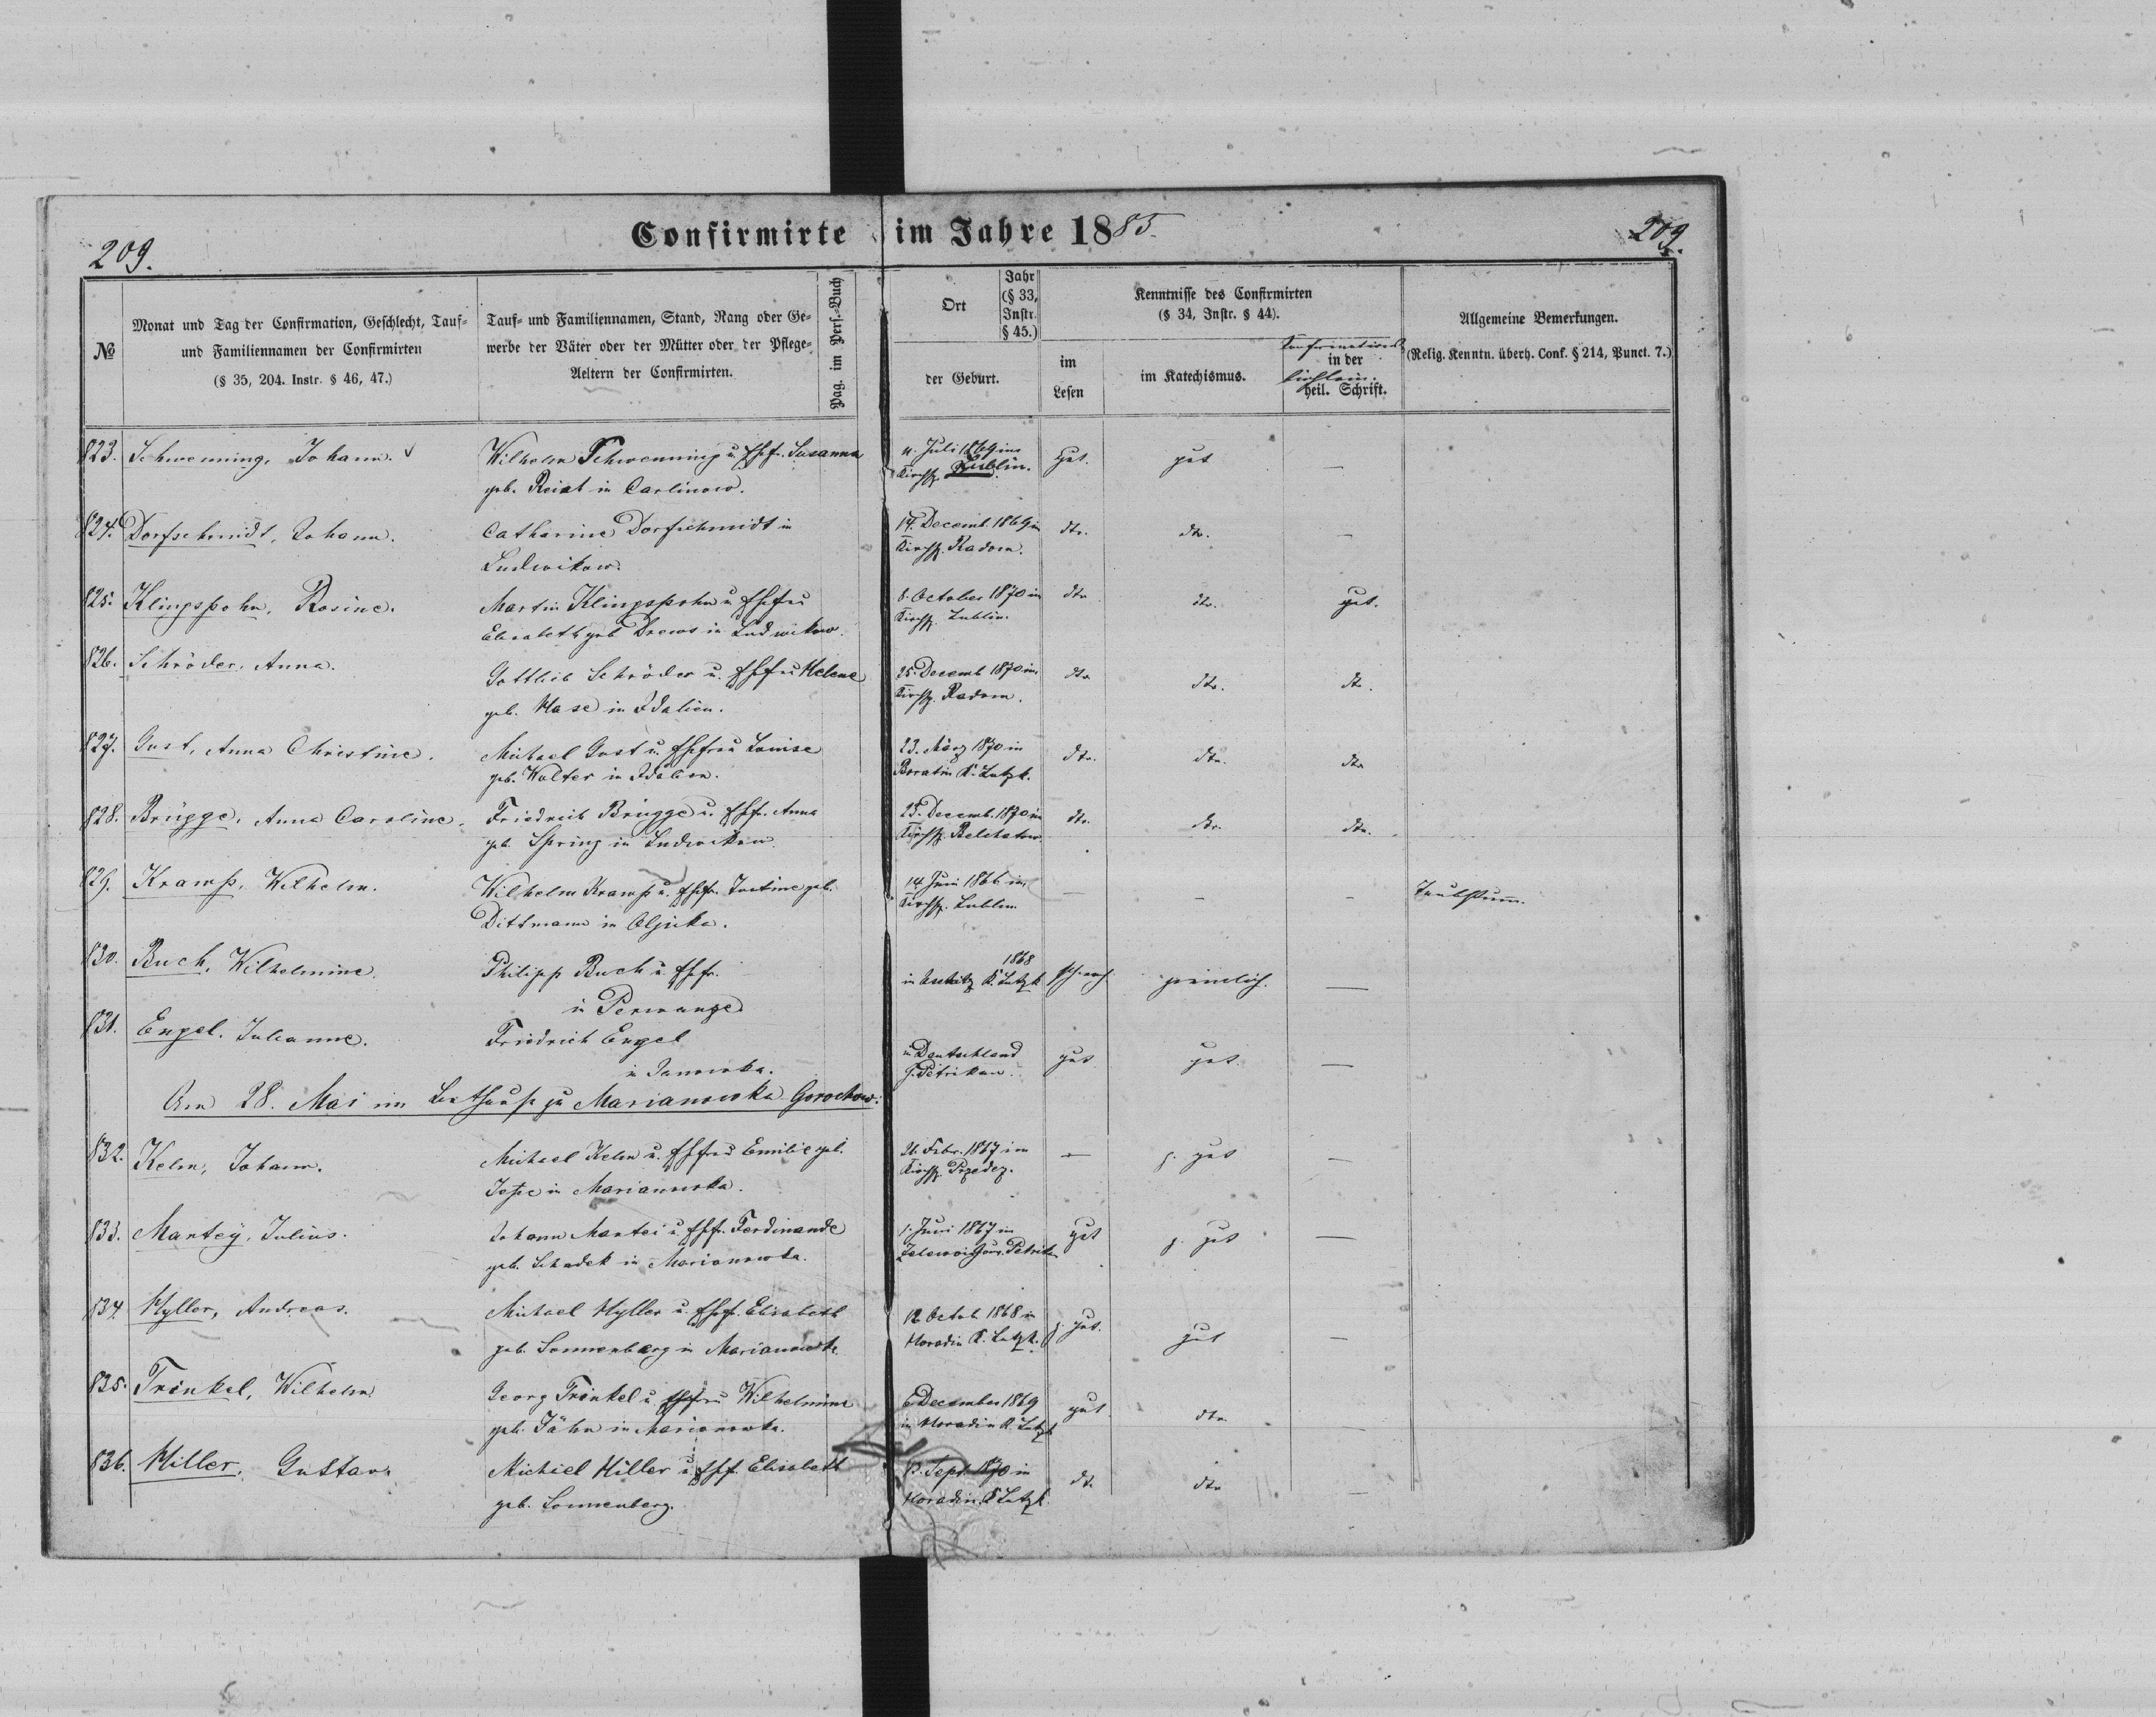 Confirmirte im Jahre 1885.
209.
209.
№
Monat und Tag der Confirmation, Geschlecht, Tauf-
und Familiennamen der Confirmirten
(§ 35, 204. Instr. § 46, 47.)
Tauf- und Familiennamen, Stand, Rang oder Ge-
werbe der Väter oder der Mütter oder der Pflege-
Aeltern der Confirmirten.
Pag. im Pers.-Buch
Ort
Jahr
(§ 33,
Instr.
§ 45.)
der Geburt.
Kenntnisse des Confirmirten
(§ 34, Instr. § 44).
im
Lesen
im Katechismus.
in der
heil. Schrift.
Allgemeine Bemerkungen.
(Relig. Kenntn. überh. Conf. § 214, Punct. 7.)
823. Schwenning, Johann.
Wilhelm Schwenning u. Ehefr. Susanna
geb. Reiat in Carlinow.
11. Juli 1869 im
Kirchsp. Lublin.
gut.
gut
—
824. Dorfschmidt, Johann.
Catharine Dorfschmidt in
Ludwikow.
14. Decemb. 1869 in
Kirchsp. Radom.
dto.
dto.
—
825. Klingspohn, Rosine.
Martin Klingspohn u. Ehefrau
Elisabeth geb. Drews in Ludwikow.
8. October 1870 in
Kirchsp. Lublin.
dto
dto.
gut.
826. Schröder, Anna.
Gottlieb Schröder u. Ehefrau Helene
geb. Hase in Idalien.
25. Decemb 1870 im
Kirchsp. Radom.
dto
dto.
dto.
827. Gust, Anna Christine.
Michael Gust u. Ehefrau Louise
geb. Walter in Idalien.
23. März 1870 in
Boratin K. Lutzk.
dto.
dto.
dto
828. Brügge, Anna Caroline.
Friedrich Brügge u. Ehefr. Anna
geb. Spring in Ludwikow
25. Decemb. 1870 im
Kirchsp. Belchatow.
dto.
dto.
dto.
829. Kramp, Wilhelm.
Wilhelm Kramp u. Ehefr. Justine geb.
Dittmann in
14 Juni 1866 im
Kirchsp. Lublin.
—
-
-
Taubstumm.
830. Buch, Wilhelmine.
Philipp Buch u. Ehefr.
in
1868
in K. Lutzk
schwach
ziemlich.
—
831. Engel, Julianne.
Friedrich Engel
in Janowka.
in Deutschland
G. Petrikau.
gut
gut.
—
Am 28. Mai im Bethause zu Marianowka Gorochow.
832. Kelm, Johann.
Michael Kelm u. Ehefrau Emilie geb.
in Marianowka.
26. Febr. 1867 im
Kirchsp. Przedez.
—
z. gut
—
833. Mantey, Julius.
Johann Mantei u. Ehefr. Ferdinande
geb. Schadek in Marianowka.
1. Juni 1867 in
Gouv. Petrikau
gut
z. gut
—
834. Hyller, Andreas.
Michael Hyller u. Ehefr. Elisabeth
geb. Sonnenberg in Marianowka
12 Octob 1868 in
Horodin K. Lutzk.
z. gut.
gut
—
835. Trinkel, Wilhelm
Georg Trinkel u. Ehefrau Wilhelmine
geb. Jähn in Marianowka.
6 December 1869
in Horadin K. Lutzk
gut.
dto.
836. Hiller, Gustav.
Michiel Hiller u. Ehefr. Elisabeth
geb. Sonnenberg.
Sept. 1870 in
Horadin. K Lutzk.
dt.
dto
—